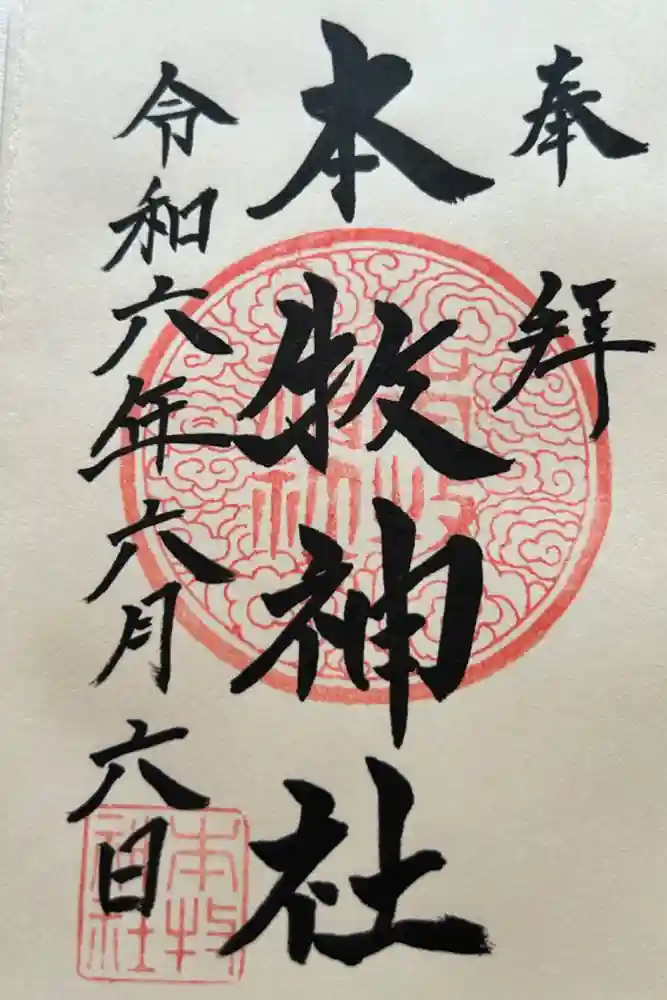 奉拝
本牧神社
令和六年六月六日
本牧
神社